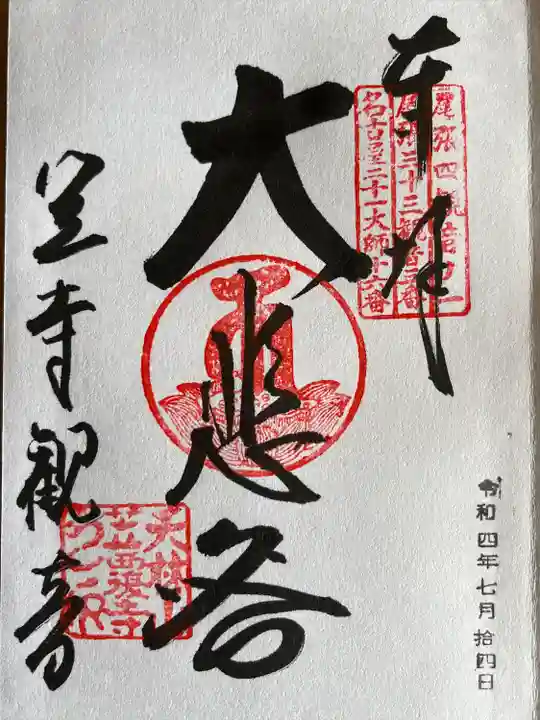 奉拝
尾張四観音の一
尾張三十三観音三番
名古屋二十一大師十六番
大悲閣
笠寺観音
天林山
笠覆寺
令和四年七月拾四日